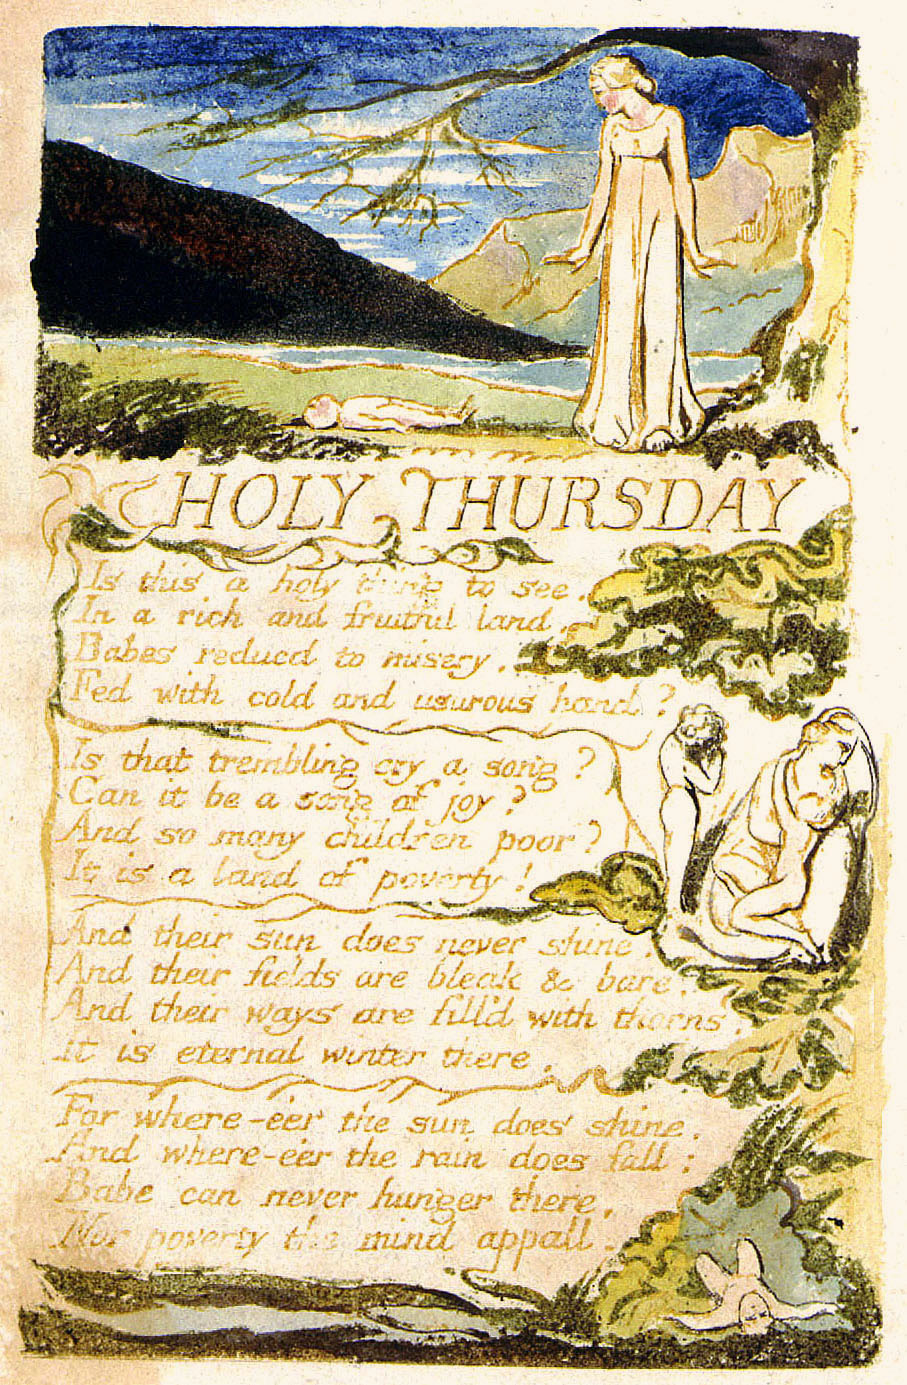 HOLY THURSDAY
Is this a holy thing to see.
In a rich and fruitful land.
Babes reduced to misery.
Fed with cold and usurous hand?
Is that trembling cry a song?
Can it be a song of joy?
And so many children poor?
It is a land of poverty!
And their sun does never shine.
And their fields are bleak & bare.
And their ways are fill'd with thorns.
It is eternal winter there.
For where-e'er the sun does shine.
And where-e'er the rain does fall:
Babe can never hunger there,
Nor poverty the mind appall.